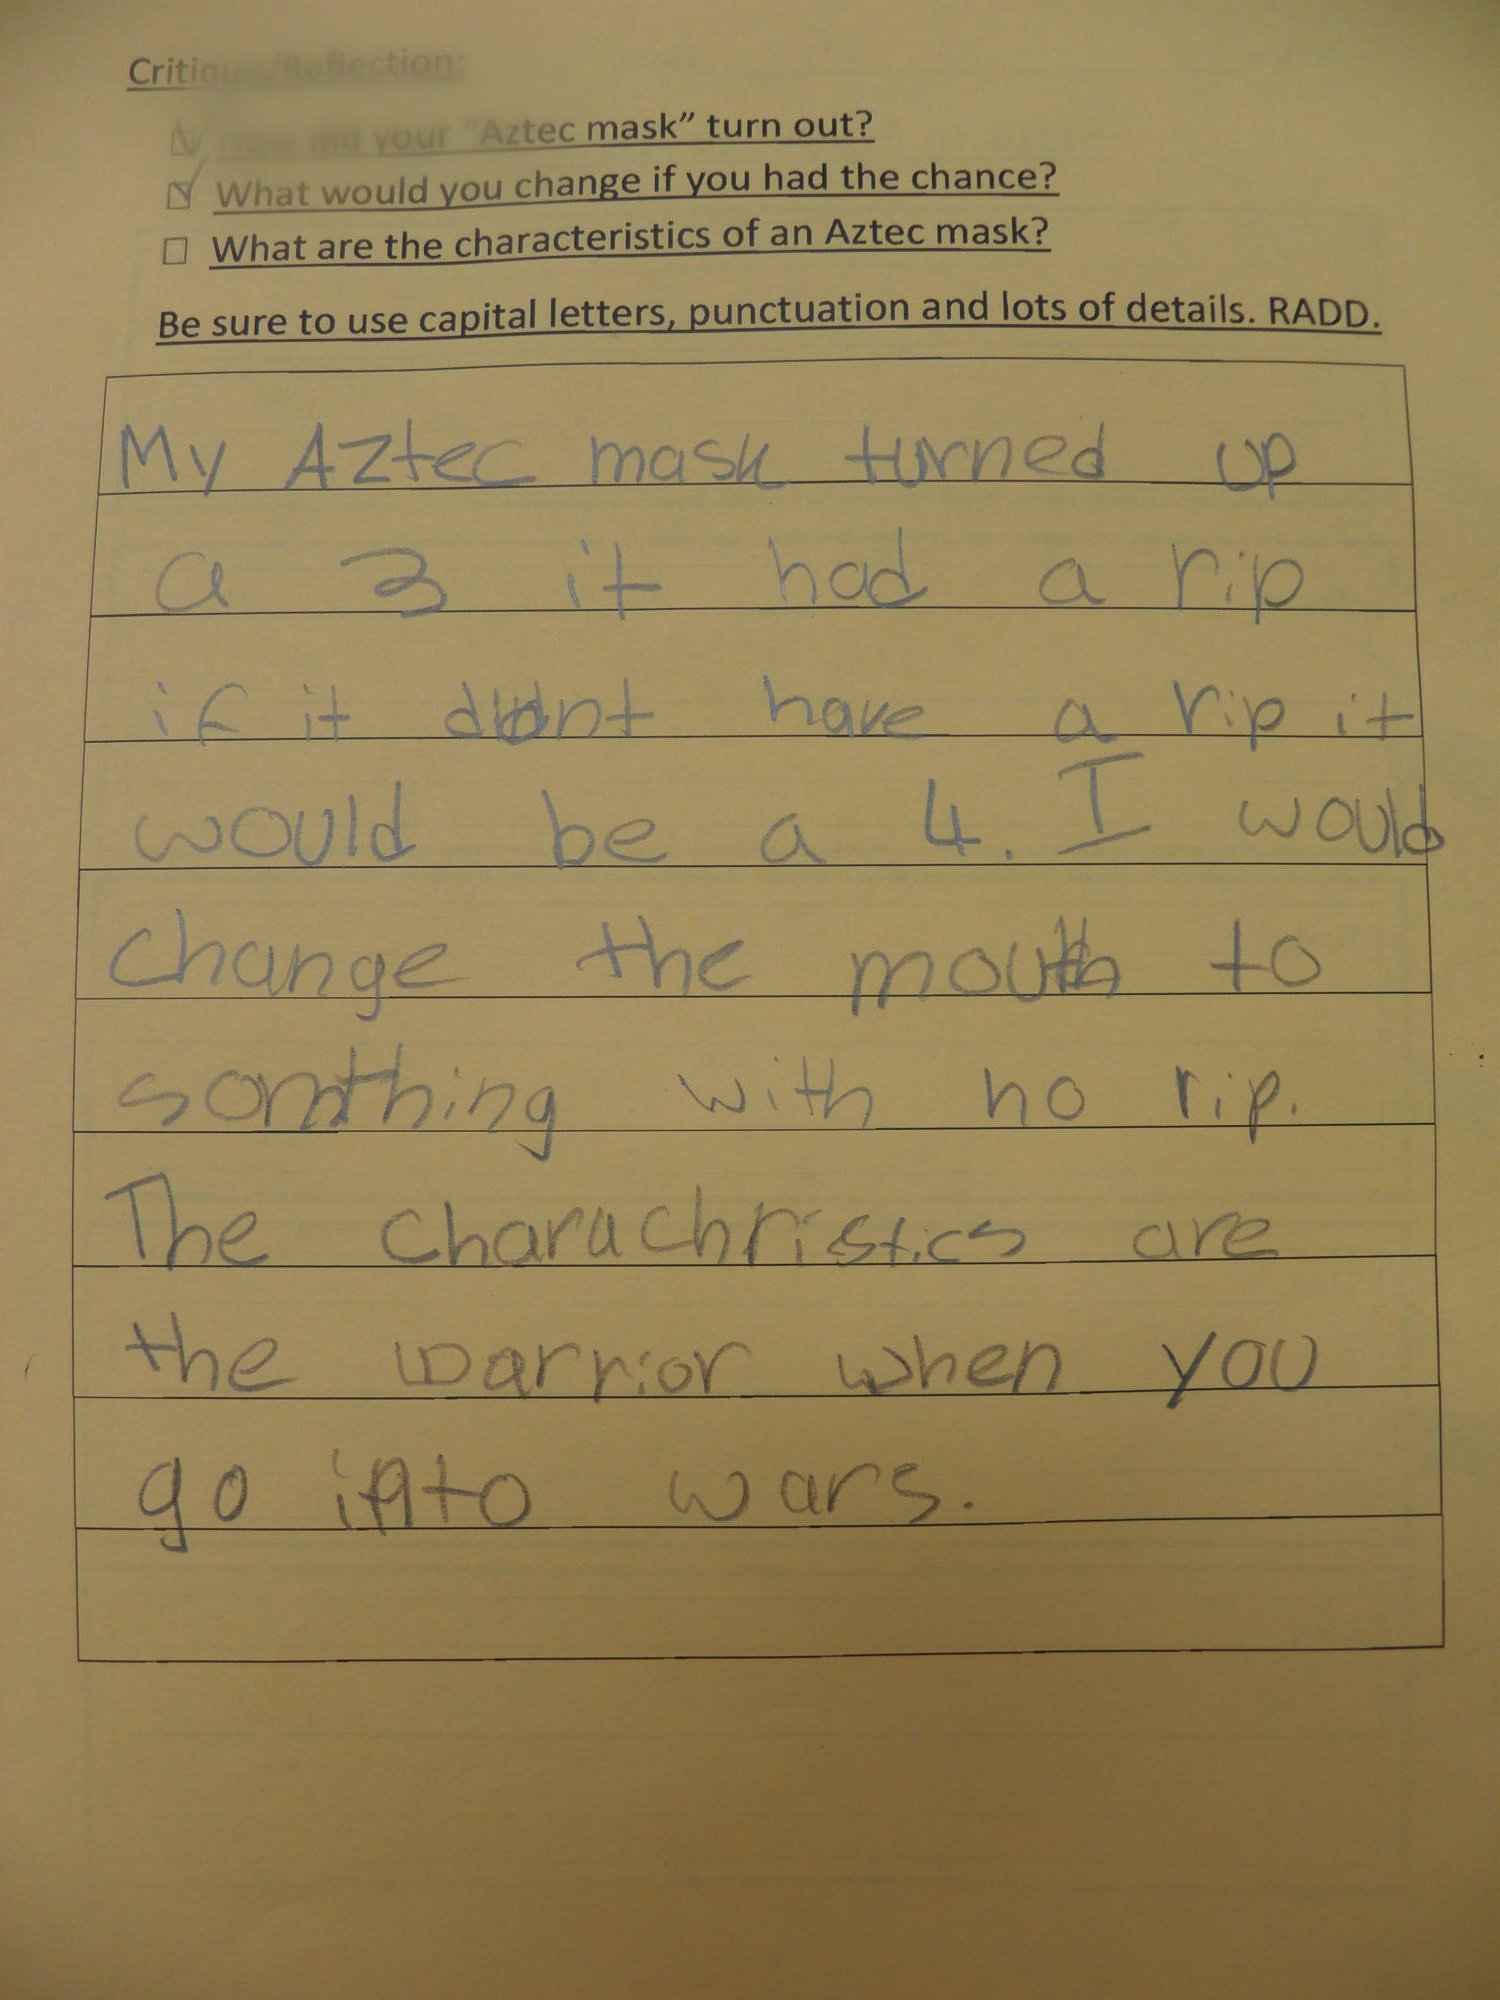 Critique/Reflection:
How did your "Aztec mask" turn out?
What would you change if you had the chance?
What are the characteristics of an Aztec mask?
Be sure to use capital letters, punctuation and lots of details. RADD.
My Aztec mask turned up
a 3 it had a rip
if it didnt have a rip it
would be a 4. I would
change the mouth to
somthing with no rip.
The charachristics are
the warrior when you
go into wars.